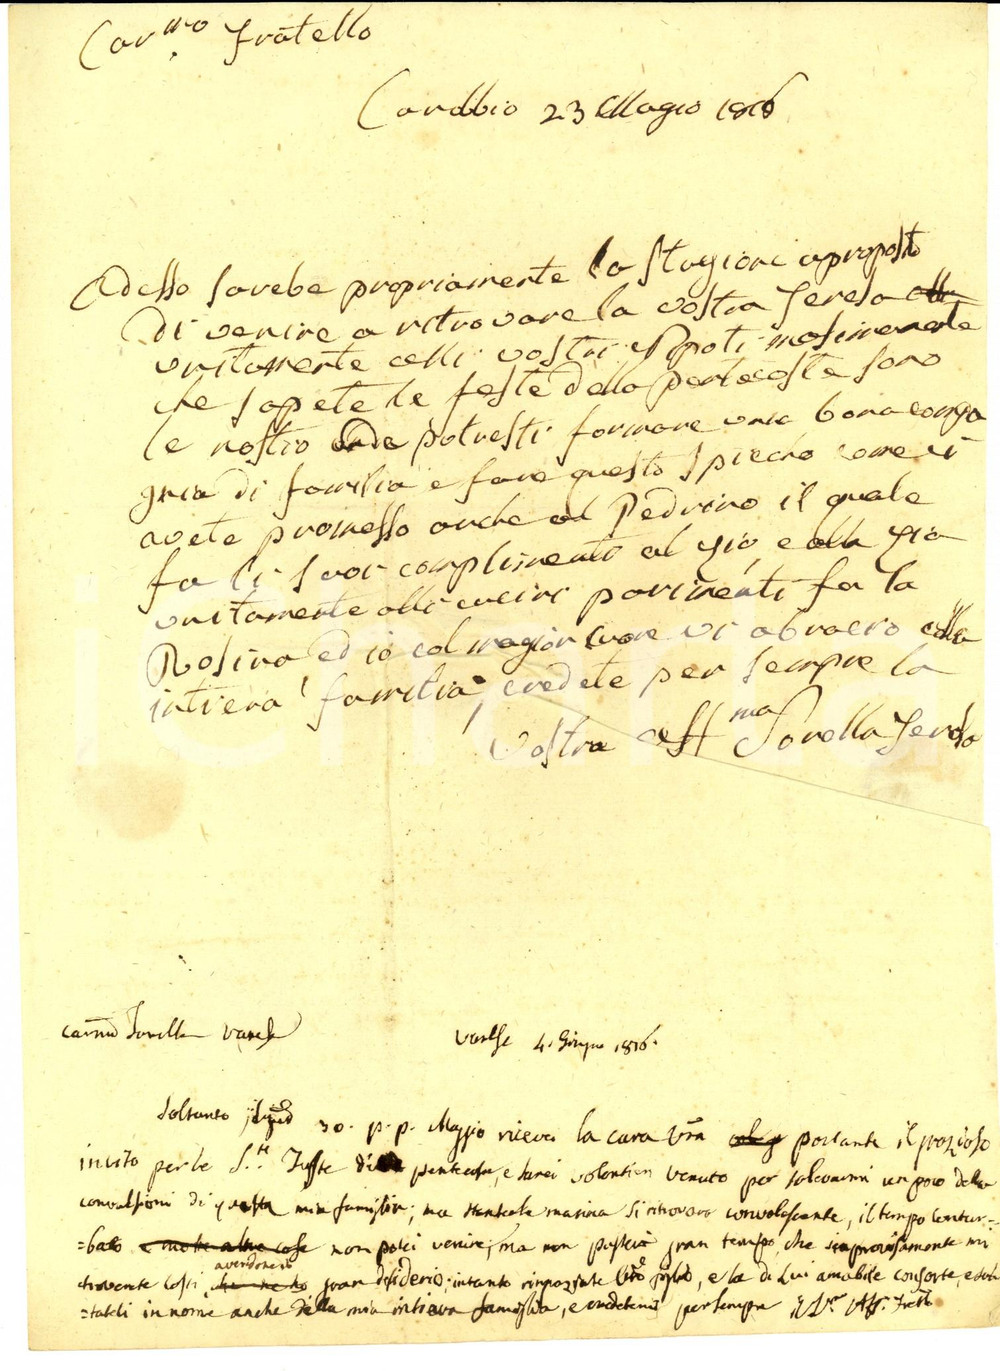 Car.mo Fratello
Carabbio 23 Magio 1816
Adesso sarebe propriamente la stagione aproposto
di venire a ritrovare la vostra Teresa
unitamente alli vostri Nipoti masimamente
che sapete le feste della pentecoste sono
le nostro onde potresti formare una bona compa
gnia di familia e fare questo spicho come vi
avete promesso anche al Pedrino il quale
fa li suoi complimenti al zio, e alla zia
unitamente alli cucini parimenti fa la
Rosina ed io col magior cuore vi abracio colla
intiera familia, credete per sempre la
vostra aff.ma Sorella Teresa
Sorella Varese
Varese 4. Giugno 1816.
Soltanto 30. p. p. Maggio ricevei la cara Vra portante il grazioso
invito per le S.te Feste di pentecoste, e sarei volentieri venuto per sollevarmi un poco dalle
convulsioni di questa mia famiglia; ma stante la mamma si ritrova convalescente, il tempo contur-
=bato e molte altre cose non potei venire, ma non passerà gran tempo, che improvisamente mi
avendone
troverete costì, gran desiderio; intanto ringraziate figlio, e la di Lui amabile consorte, e salu
=tateli in nome anche della mia intiera famiglia, e credetemi per sempre il V.o Aff. Frello